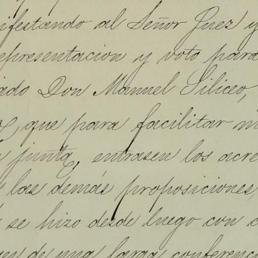 ifestando al Señor Juez y
representacion y voto para
iado Don Manuel Siliceo,
que para facilitar
junta, entrasen los acre
las demás proposiciones,
se hizo desde luego con
de una larga conferenc